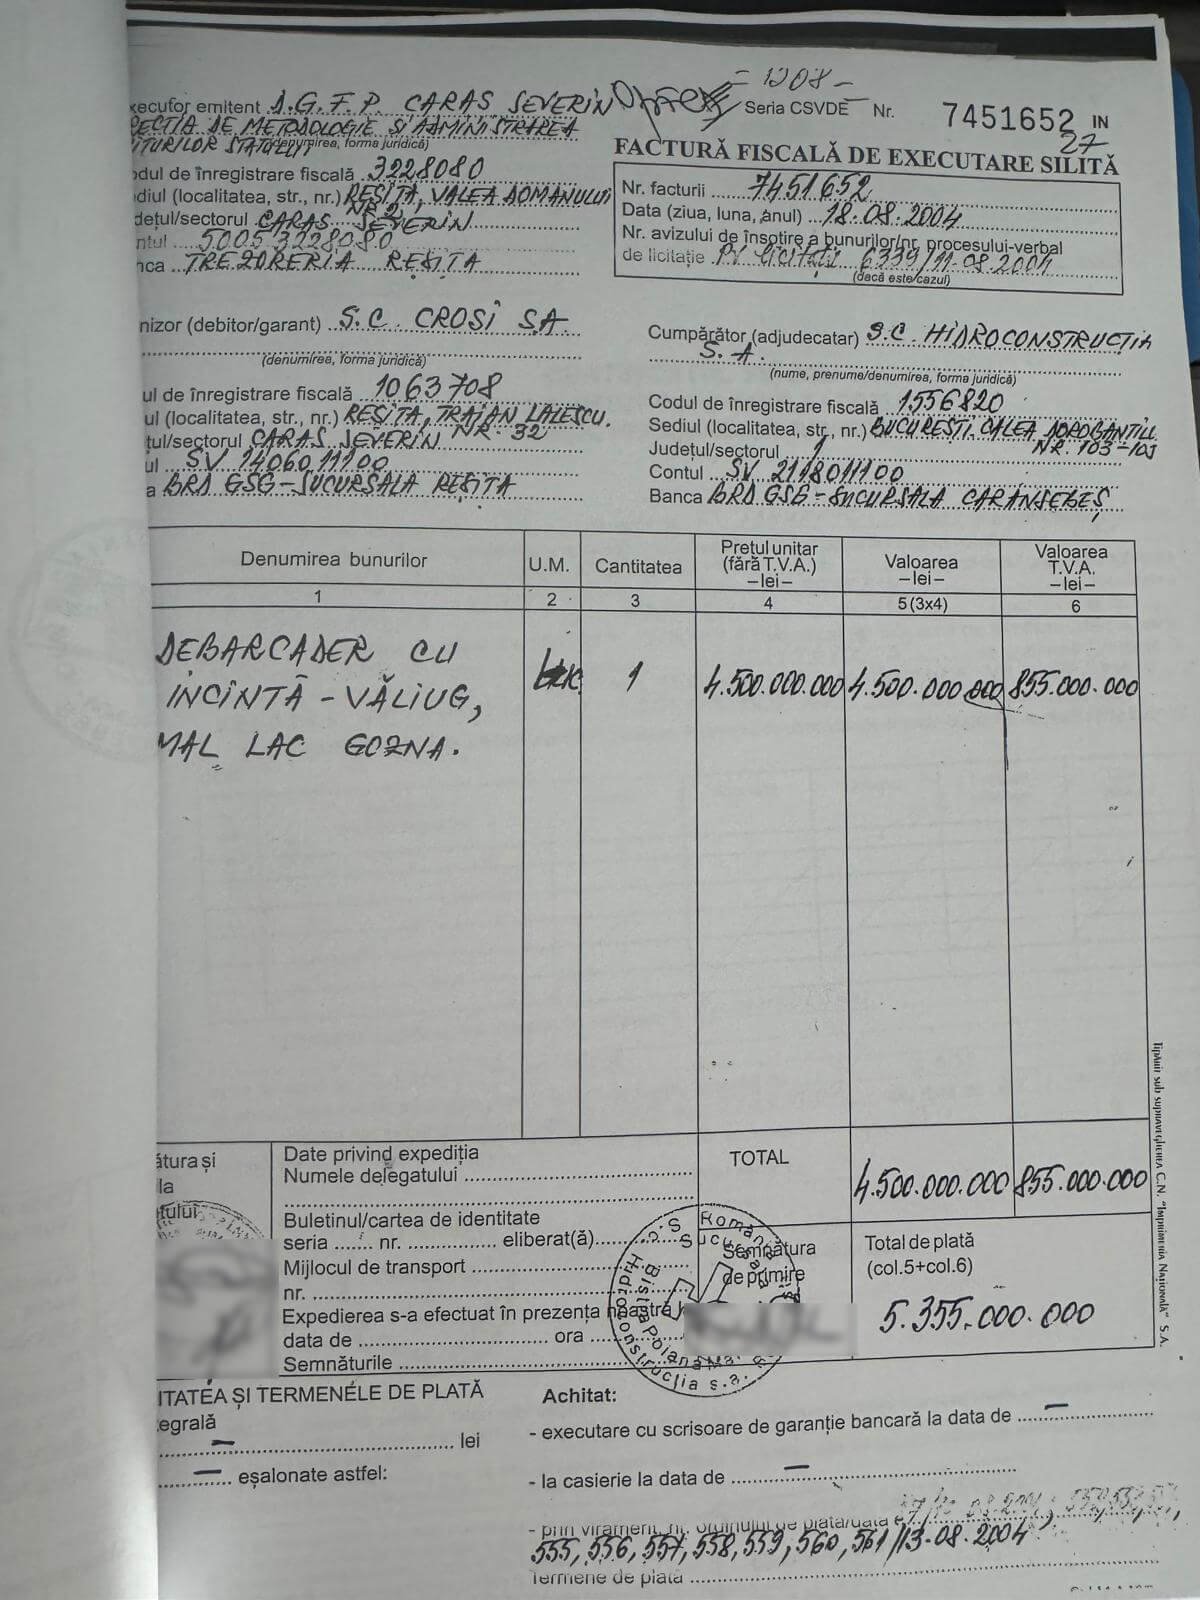 - 1208 -
xecutor emitent D.G.F.P. CARAS SEVERIN
Seria CSVDE Nr. 7451652 IN
27
RECTIA DE METODOLOGIE SI ADMINISTRAREA
ITURILOR STATULUI
(denumirea, forma juridică)
FACTURĂ FISCALĂ DE EXECUTARE SILITĂ
odul de înregistrare fiscală 3228080
diul (localitatea, str., nr.) REȘIȚA, VALEA DOMANULUI
NR 2
dețul/sectorul CARAS SEVERIN
ntul 50053228080
nca TREZORERIA REȘIȚA
Nr. facturii 7451652
Data (ziua, luna, anul) 18.08.2004
Nr. avizului de însoțire a bunurilor/nr. procesului-verbal
de licitație PV licitație 6339/11.08.2004
(dacă este cazul)
nizor (debitor/garant) S.C. CROSI S.A.
(denumirea, forma juridică)
ul de înregistrare fiscală 1063708
ul (localitatea, str., nr.) REȘIȚA, TRAIAN LALESCU.
NR. 32
țul/sectorul CARAS SEVERIN
ul SV 1406011100
a BRD GSG-SUCURSALA REȘIȚA
Cumpărător (adjudecatar) S.C. HIDROCONSTRUCȚIA
S.A.
(nume, prenume/denumirea, forma juridică)
Codul de înregistrare fiscală 1556820
Sediul (localitatea, str., nr.) BUCUREȘTI. CALEA DOROBANTILL
NR. 103-105
Județul/sectorul 1
Contul SV 2118011100
Banca BRD GSG-SUCURSALA CARANSEBEȘ
Denumirea bunurilor U.M. Cantitatea Prețul unitar (fără T.V.A.) –lei– Valoarea –lei– Valoarea T.V.A. –lei–
1 2 3 4 5(3x4) 6
DEBARCADER CU 1 4.500.000.000 4.500.000.000 855.000.000
INCINTĂ - VĂLIUG,
MAL LAC GOZNA.
ătura și
la
tului
Date privind expediția
Numele delegatului
Buletinul/cartea de identitate
seria nr. eliberat(ă)
Mijlocul de transport
nr.
Expedierea s-a efectuat în prezența noastră
data de ora
Semnăturile
TOTAL 4.500.000.000 855.000.000
Semnătura
de primire
Total de plată
(col.5+col.6)
5.355.000.000
S.C. Română Sucursala
Bistra Poiana Mă
Hidroconstrucția s.a.
Tipărit sub supravegherea C.N. "Imprimeria Națională" S.A.
ITATEA ȘI TERMENELE DE PLATĂ
tegrală
– lei
– eșalonate astfel:
Achitat:
- executare cu scrisoare de garanție bancară la data de –
- la casierie la data de –
- prin virament, nr. ordinului de plată/data
555, 556, 557, 558, 559, 560, 561/13.08.2004
Termene de plată